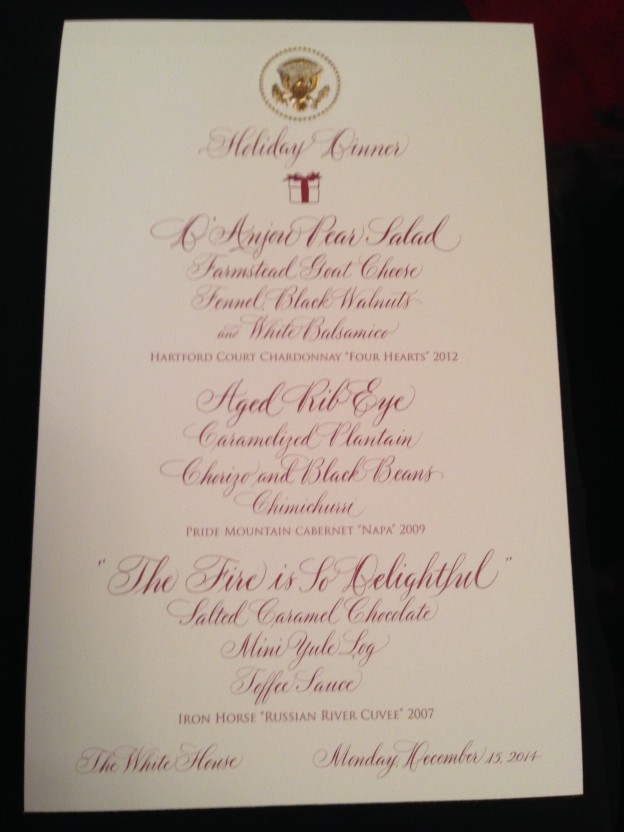 Holiday Dinner
D'Anjou Pear Salad
Farmstead Goat Cheese
Fennel, Black Walnuts
and White Balsamico
HARTFORD COURT CHARDONNAY "FOUR HEARTS" 2012
Aged Rib Eye
Caramelized Plantain
Chorizo and Black Beans
Chimichurri
PRIDE MOUNTAIN CABERNET "NAPA" 2009
"The Fire is So Delightful"
Salted Caramel Chocolate
Mini Yule Log
Toffee Sauce
IRON HORSE "RUSSIAN RIVER CUVEE" 2007
The White House Monday, December 15, 2014